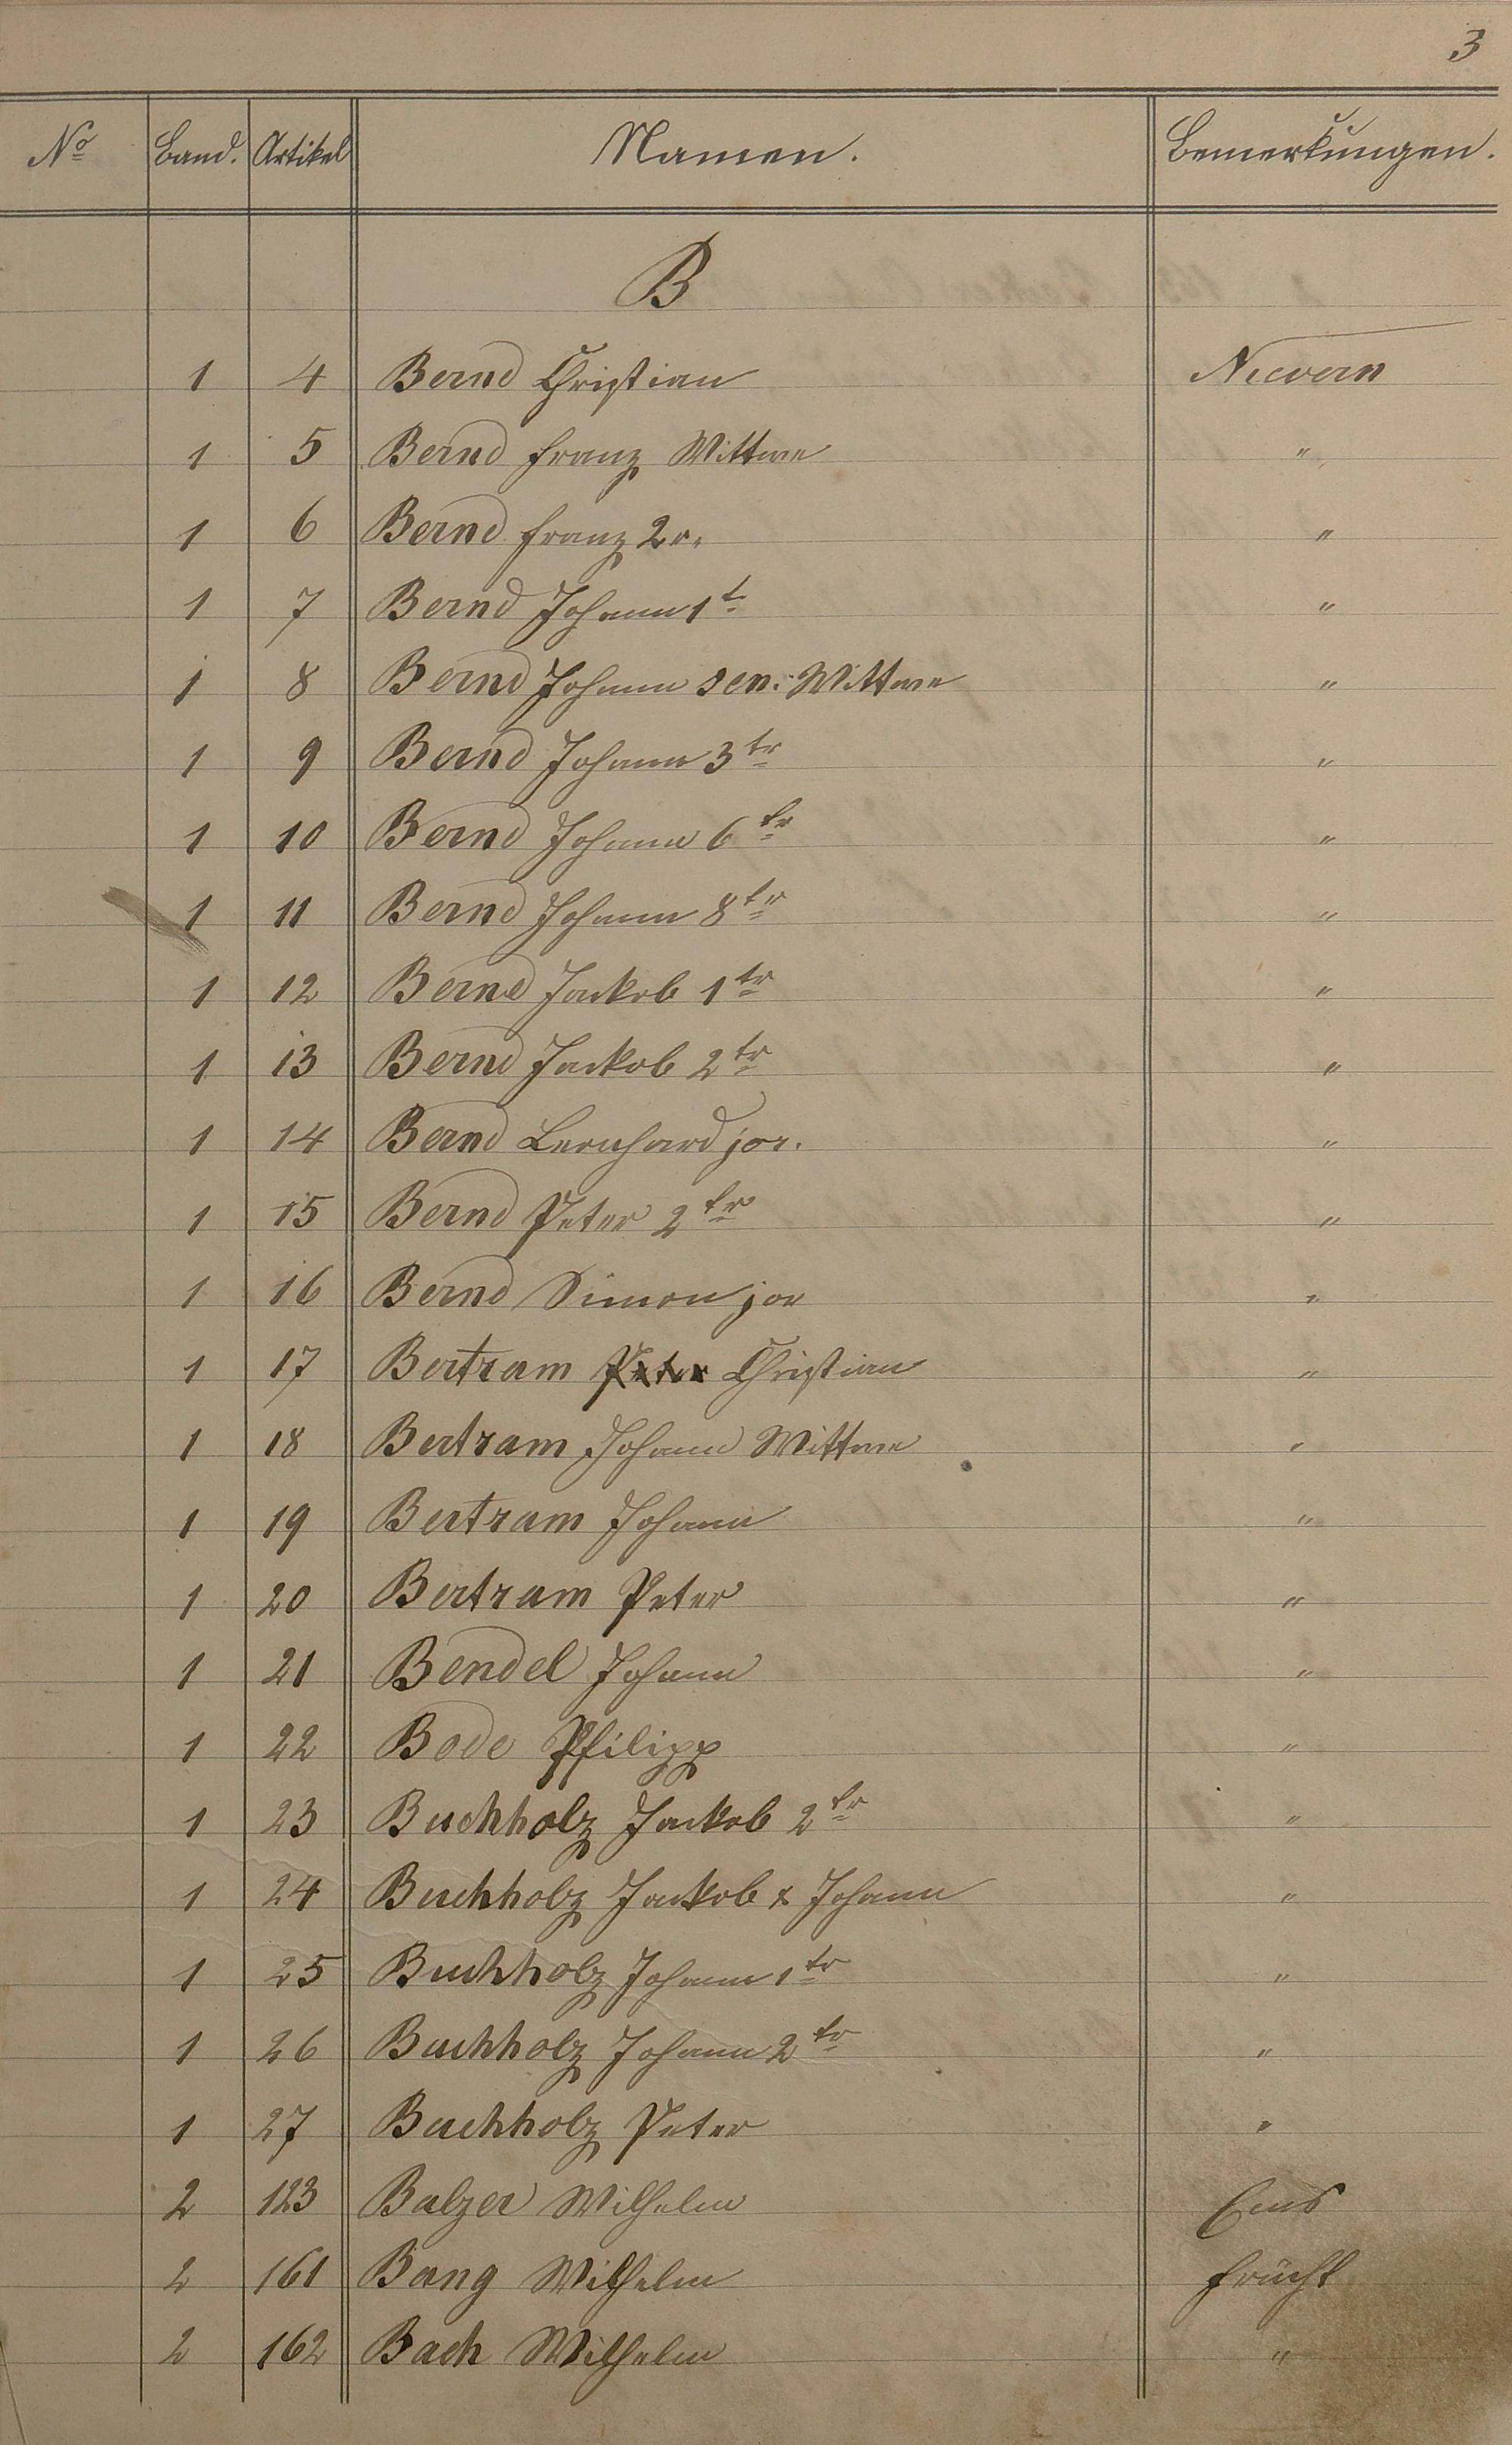 3
No Band. Artikel Namen. Bemerkungen.
B
1 4 Bernd Christian Nievern
1 5 Bernd Franz Wittwe "
1 6 Bernd Franz 2r. "
1 7 Bernd Johann 1t "
1 8 Bernd Johann sen: Wittwe "
1 9 Bernd Johann 3tr "
1 10 Bernd Johann 6tr "
1 11 Bernd Johann 8tr "
1 12 Bernd Jackob 1tr "
1 13 Bernd Jackob 2tr "
1 14 Bernd Leonhard jor. "
1 15 Bernd Peter 2tr "
1 16 Bernd Simon jor "
1 17 Bertram Peter Christian "
1 18 Bertram Johann Wittwe "
1 19 Bertram Johann "
1 20 Bertram Peter "
1 21 Bendel Johann "
1 22 Bode Philipp "
1 23 Buchholz Jackob 2tr "
1 24 Buchholz Jackob & Johann "
1 25 Buchholz Johann 1tr "
1 26 Buchholz Johann 2tr "
1 27 Buchholz Peter "
2 123 Balzer Wilhelm Ems
2 161 Bang Wilhelm Frücht
2 162 Bach Wilhelm "